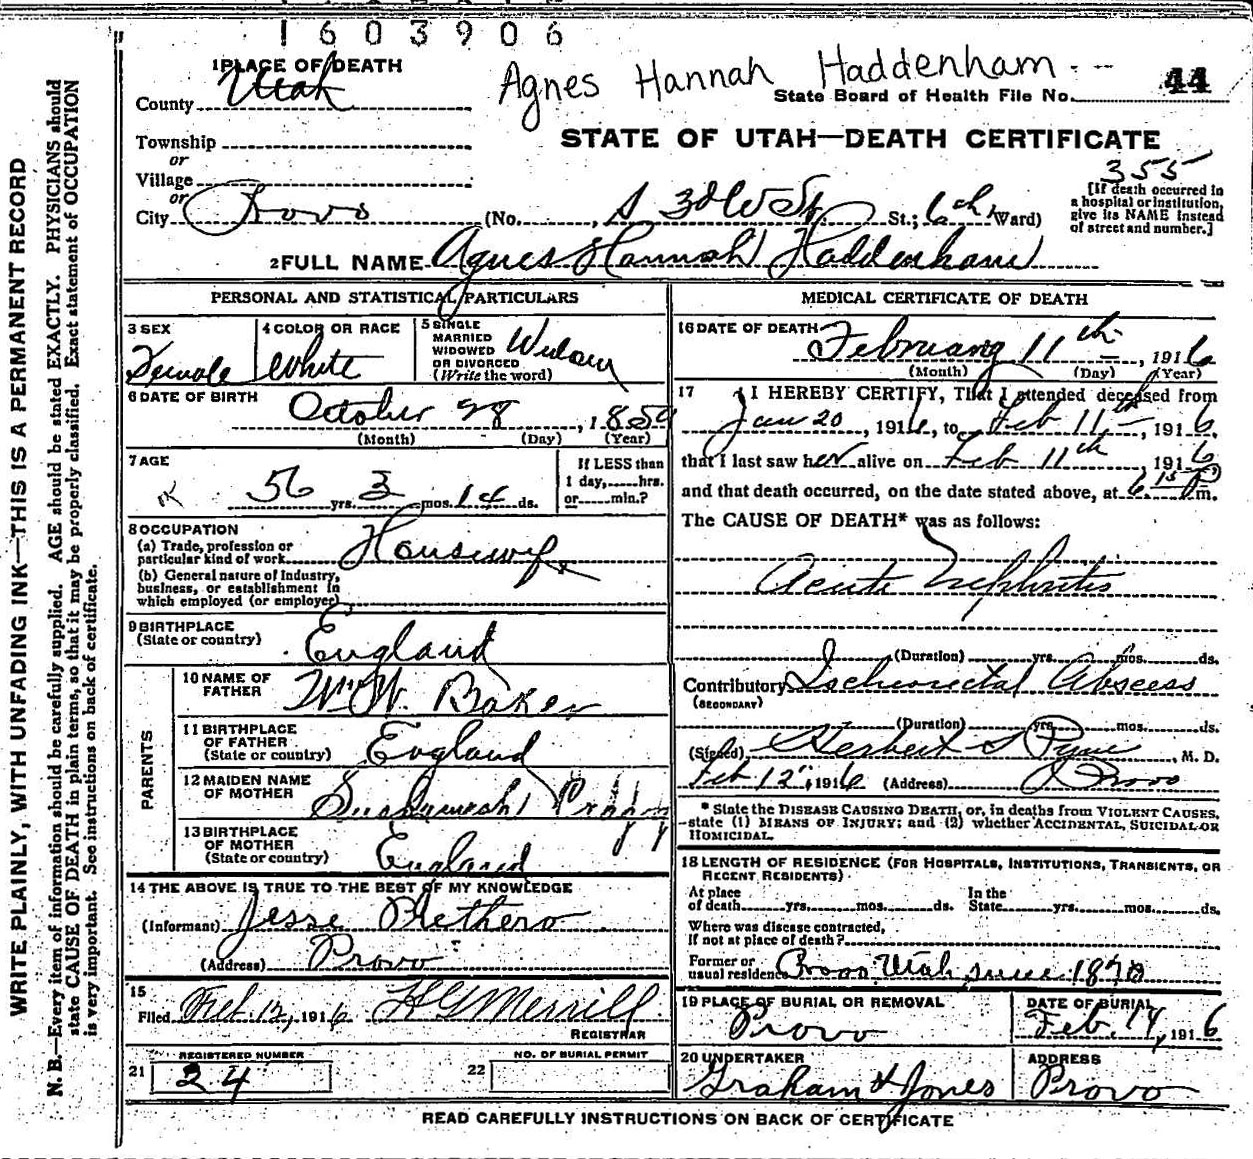 1603906
Agnes Hannah Haddenham
1 PLACE OF DEATH
County Utah
State Board of Health File No. 44
STATE OF UTAH—DEATH CERTIFICATE
Township
or
Village
or
City Provo (No. , S 3d W St. St.; 6th Ward)
355
[If death occurred in
a hospital or institution,
give its NAME instead
of street and number.]
2 FULL NAME Agnes Hannah Haddenham
PERSONAL AND STATISTICAL PARTICULARS
3 SEX
Female
4 COLOR OR RACE
White
5 SINGLE
MARRIED
WIDOWED
OR DIVORCED
(Write the word)
Widow
6 DATE OF BIRTH
October 28, 1859
(Month) (Day) (Year)
7 AGE
56 yrs. 3 mos. 14 ds.
If LESS than
1 day,......hrs.
or......min.?
8 OCCUPATION
(a) Trade, profession or
particular kind of work Housewife
(b) General nature of industry,
business, or establishment in
which employed (or employer)
9 BIRTHPLACE
(State or country) England
PARENTS
10 NAME OF
FATHER Wm W. Baker
11 BIRTHPLACE
OF FATHER
(State or country) England
12 MAIDEN NAME
OF MOTHER
13 BIRTHPLACE
OF MOTHER
(State or country) England
14 THE ABOVE IS TRUE TO THE BEST OF MY KNOWLEDGE
(Informant) Jesse Plethero
(Address) Provo
15
Filed Feb 12, 1916 H G Merrill
REGISTRAR
21 REGISTERED NUMBER
24
22 NO. OF BURIAL PERMIT
MEDICAL CERTIFICATE OF DEATH
16 DATE OF DEATH
February 11th, 1916
(Month) (Day) (Year)
17 I HEREBY CERTIFY, That I attended deceased from
Jan 20, 1916, to Feb 11th, 1916,
that I last saw her alive on Feb 11th, 1916
and that death occurred, on the date stated above, at 6 15 P m.
The CAUSE OF DEATH* was as follows:
Acute Nephritis
(Duration) yrs. mos. ds.
Contributory Ischiorectal Abscess
(SECONDARY)
(Duration) yrs. mos. ds.
(Signed) Herbert S Pyne, M. D.
Feb 12", 1916 (Address) Provo
* State the DISEASE CAUSING DEATH, or, in deaths from VIOLENT CAUSES,
state (1) MEANS OF INJURY; and (2) whether ACCIDENTAL, SUICIDAL OR
HOMICIDAL.
18 LENGTH OF RESIDENCE (FOR HOSPITALS, INSTITUTIONS, TRANSIENTS, OR
RECENT RESIDENTS)
At place
of death yrs. mos. ds.
In the
State yrs. mos. ds.
Where was disease contracted,
if not at place of death?
Former or
usual residence Provo Utah since
19 PLACE OF BURIAL OR REMOVAL
Provo
DATE OF BURIAL
Feb. 14, 1916
20 UNDERTAKER
Graham & Jones
ADDRESS
Provo
READ CAREFULLY INSTRUCTIONS ON BACK OF CERTIFICATE
WRITE PLAINLY, WITH UNFADING INK—THIS IS A PERMANENT RECORD
N. B.—Every item of information should be carefully supplied. AGE should be stated EXACTLY. PHYSICIANS should
state CAUSE OF DEATH in plain terms, so that it may be properly classified. Exact statement of OCCUPATION
is very important. See instructions on back of certificate.